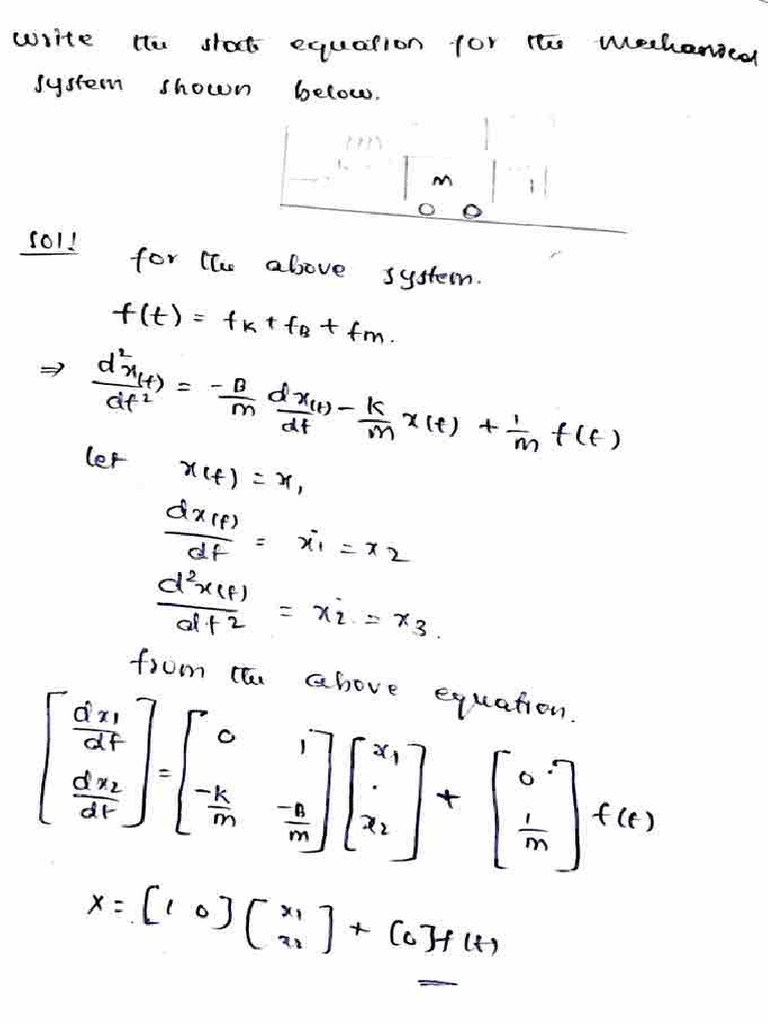 write the state equation for the Mechanical
system shown below.
m
sol!
for the above system.
f(t) = fK + fB + fm.
⇒ d²x(t)/dt² = -B/m dx(t)/dt - K/m x(t) + 1/m f(t)
let x(t) = x₁
dx(t)/dt = ẋ₁ = x₂
d²x(t)/dt² = ẋ₂ = x₃.
from the above equation.
[dx₁/dt dx₂/dt] = [0 1 -K/m -B/m] [x₁ . x₂] + [0 1/m] f(t)
x = [1 0] [x₁ x₂] + [0] f(t)